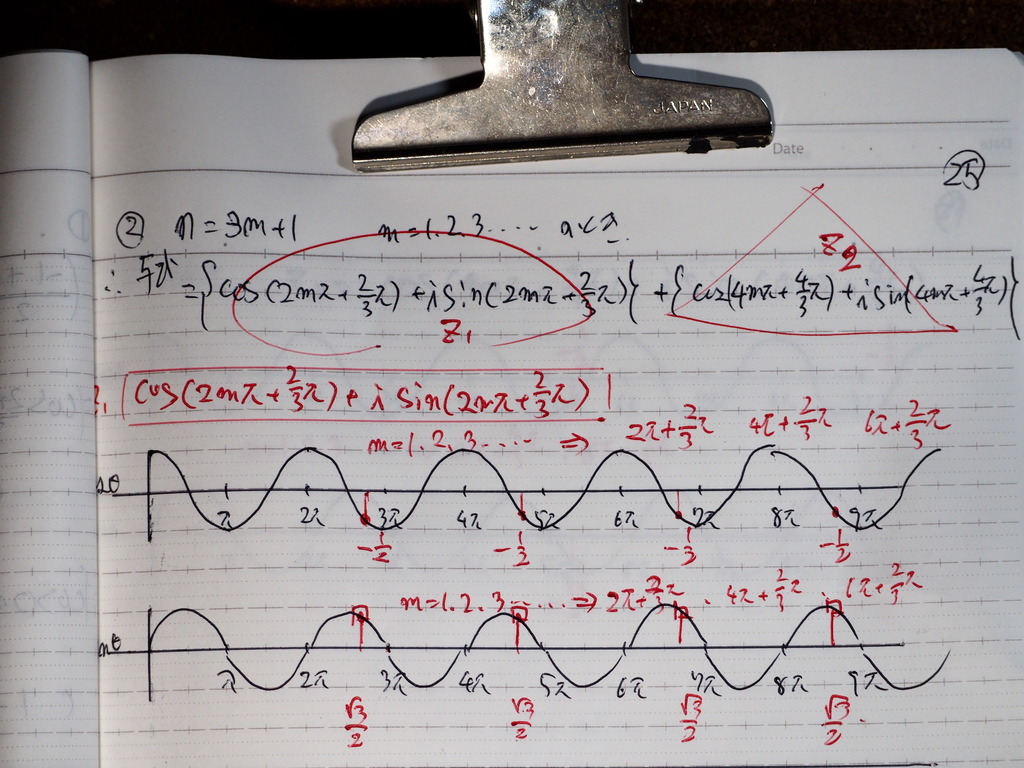 JAPAN
Date
25
② n=3m+1 m=1.2.3.....
∴ 与式={cos(2mπ+2/3π)+i sin(2mπ+2/3π)}+{cos(4mπ+4/3π)+i sin(4mπ+4/3π)}
Z₁ Z₂
cos(2mπ+2/3π)+i sin(2mπ+2/3π)
m=1.2.3..... ⇒ 2π+2/3π 4π+2/3π 6π+2/3π
π 2π 3π 4π 5π 6π 7π 8π 9π
-1/2 -1/2 -1/2 -1/2
m=1.2.3..... ⇒ 2π+2/3π . 4π+2/3π . 6π+2/3π
π 2π 3π 4π 5π 6π 7π 8π 9π
√3/2 √3/2 √3/2 √3/2